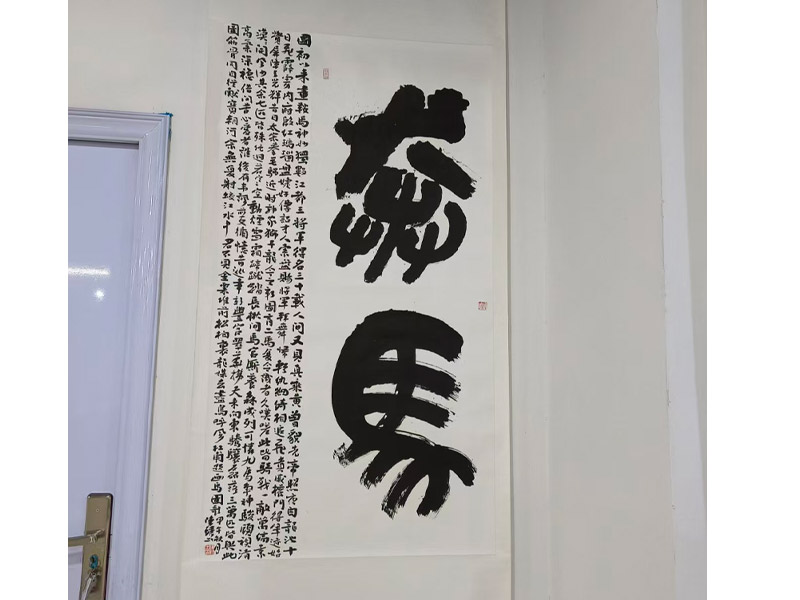 奔馬
國初以來畫鞍馬神妙獨數江都王將軍得名三十載人間又見真乘黃曾貌先帝照夜白龍池十
日飛霹靂內府殷紅瑪瑙盤婕妤傳詔才人索盤賜將軍拜舞歸輕紈細綺相追飛貴戚權門得筆跡始
覺屏障生光輝昔日太宗拳毛騧近時郭家獅子花今之新圖有二馬復令識者久嘆嗟此皆騎戰一敵萬縞素
漠開風沙其余七匹亦殊絕迥若寒空動煙雪霜蹄蹴踏長楸間馬官廝養森成列可憐九馬爭神駿顧視清
高氣深穩借問苦心愛者誰後有韋諷前支遁憶昔巡幸新豐宮翠華拂天來向東騰驤磊落三萬匹皆與此
圖筋骨同自從獻寶朝河宗無復射蛟江水中君不見金粟堆前松柏裏龍媒去盡鳥呼風杜甫題畫馬圖甲午秋月